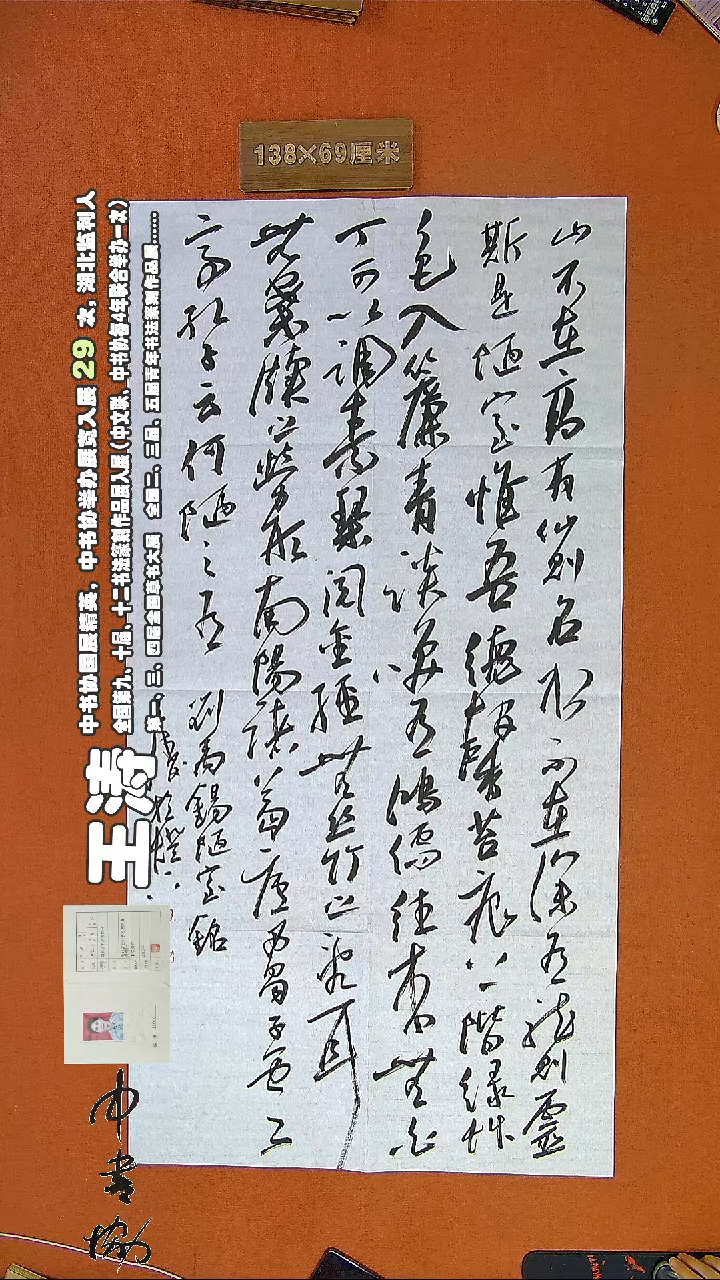 138×69厘米
山不在高有仙则名水不在深有龙则灵
斯是陋室惟吾德馨苔痕上阶绿草
色入帘青谈笑有鸿儒往来无白
丁可以调素琴阅金经无丝竹之乱耳
无案牍之劳形南阳诸葛庐西蜀子云
亭孔子云何陋之有
刘禹锡陋室铭
中书协国展精英,中书协举办展赛入展29次,湖北监利人
全国第九、十届、十二书法篆刻作品展入展(中文联、中书协每4年联合举办一次)
第一、三、四届全国草书大展 全国二、三届、五届青年书法篆刻作品展……
王涛
中书协